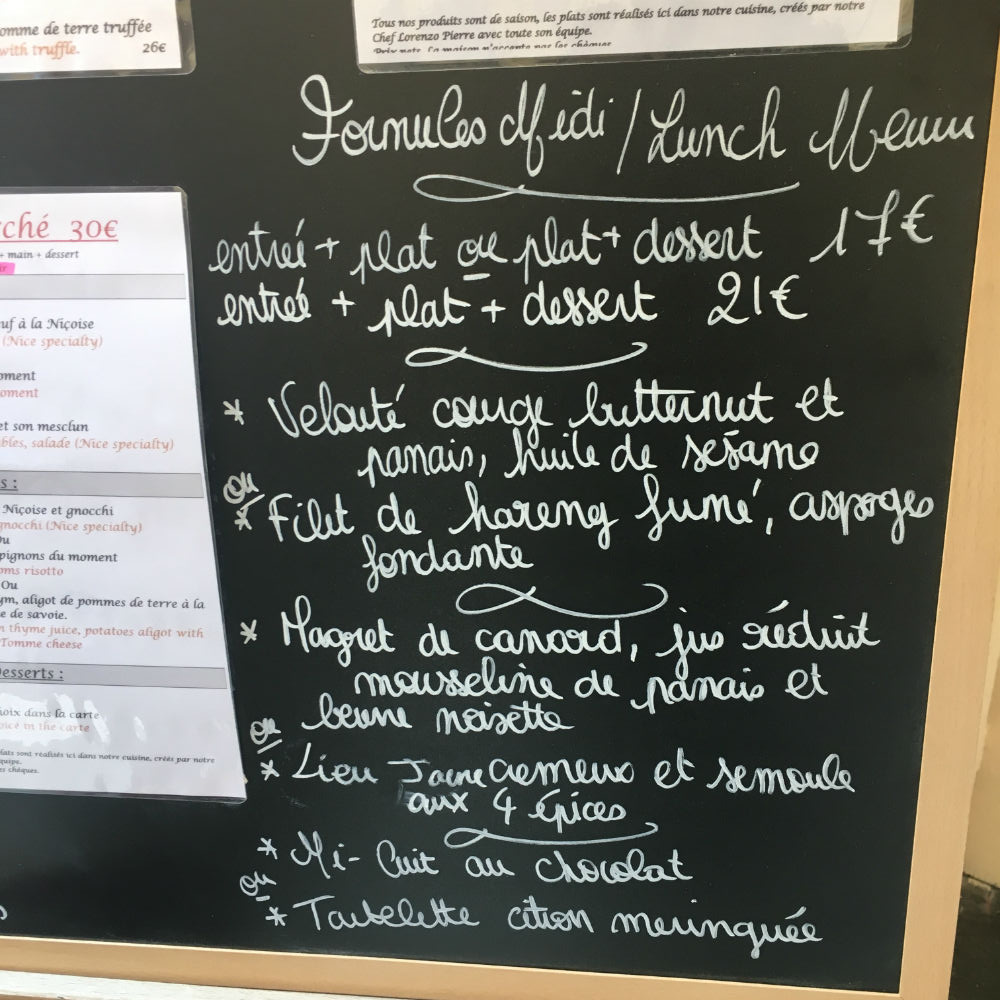 omme de terre truffée
with truffle. 26€
Tous nos produits sont de saison, les plats sont réalisés ici dans notre cuisine, créés par notre
Chef Lorenzo Pierre avec toute son équipe.
Prix nets. La maison n'accepte pas les chèques
Formules Midi / Lunch Menu
entrée + plat ou plat + dessert 17€
entrée + plat + dessert 21€
* Velouté courge butternut et
panais, huile de sesame
ou
* Filet de hareng fumé, asperges
fondante
* Magret de canard, jus réduit
mousseline de panais et
beurre noisette
ou
* Lieu Jaune crémeux et semoule
aux 4 épices
* Mi-Cuit au chocolat
ou
* Tartelette citron meringuée
ché 30€
+ main + dessert
uf à la Niçoise
(Nice specialty)
oment
oment
et son mesclun
bles, salade (Nice specialty)
s :
Niçoise et gnocchi
gnocchi (Nice specialty)
Ou
pignons du moment
oms risotto
Ou
ym, aligot de pommes de terre à la
e de savoie.
n thyme juice, potatoes aligot with
Tomme cheese
esserts :
oix dans la carte
oice in the carte
lats sont réalisés ici dans notre cuisine, créés par notre
quipe.
es chèques.